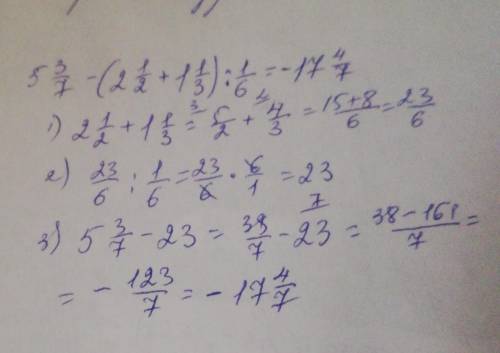 5 3/7 - (2 1/2 + 1 1/3) : 1/6 = -17 4/7
1) 2 1/2 + 1 1/3 = 5/2 + 4/3 = (15+8)/6 = 23/6
2) 23/6 : 1/6 = 23/6 · 6/1 = 23
3) 5 3/7 - 23 = 38/7 - 23 = (38-161)/7 =
= - 123/7 = -17 4/7